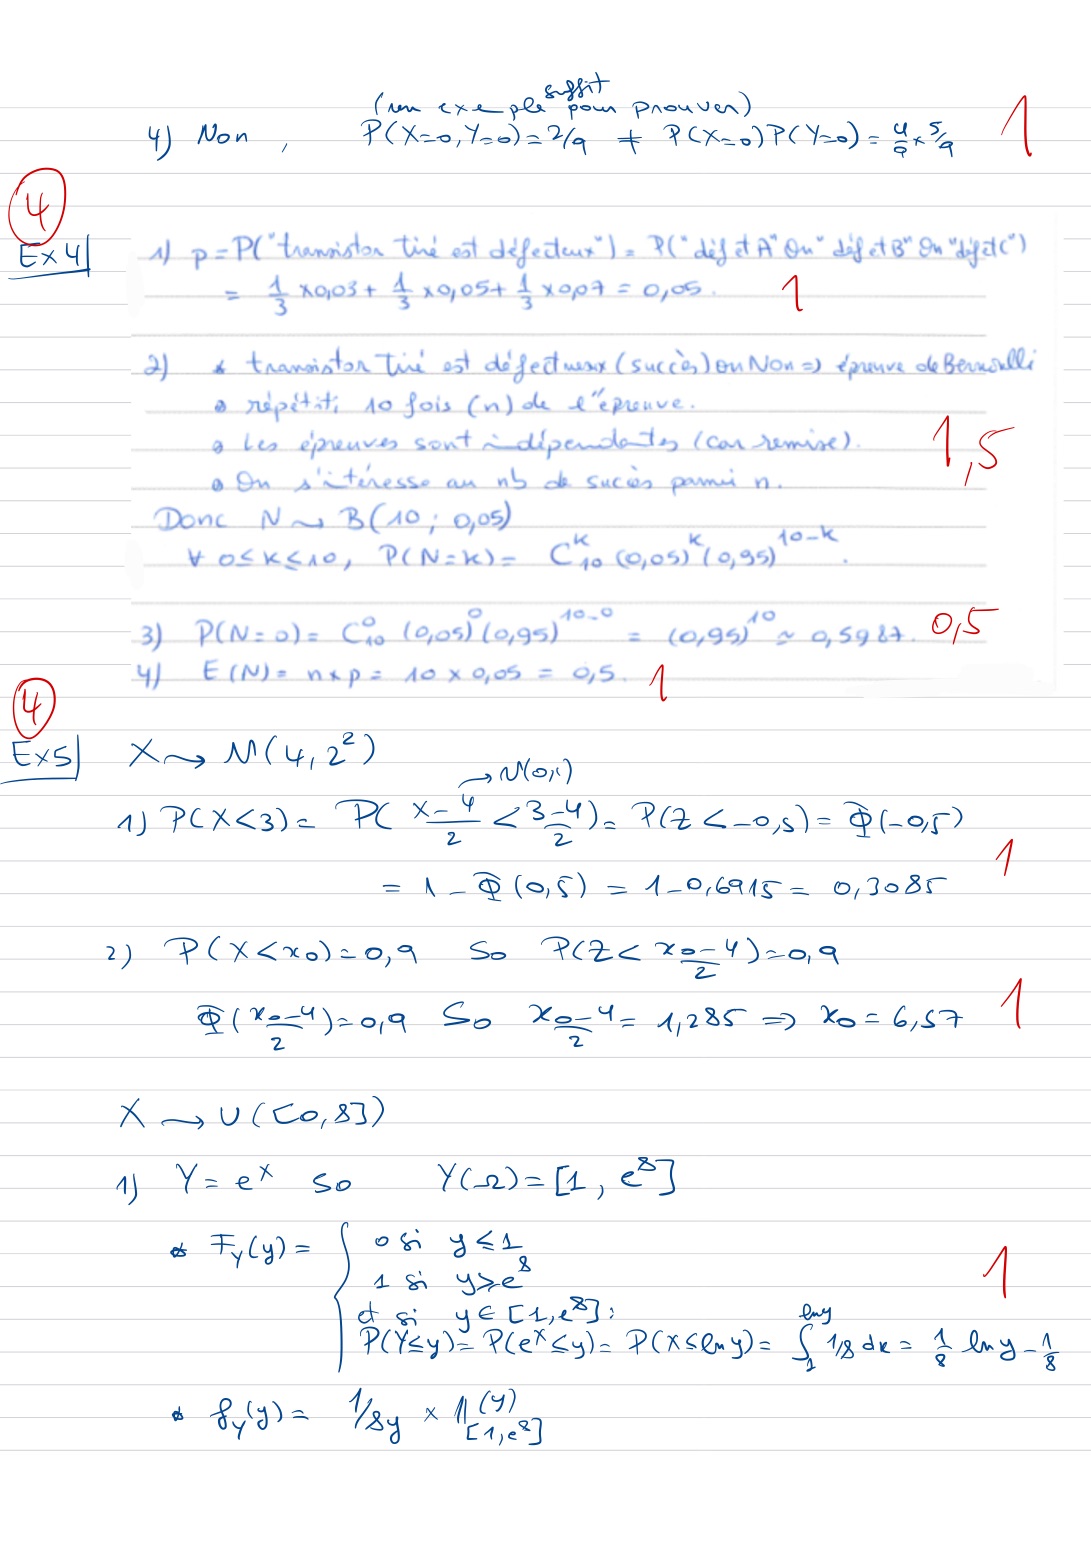 (un exemple suffit pour prouver)
4) Non , P(X=0,Y=0)=2/9 ≠ P(X=0)P(Y=0)=4/9 x 5/9 1
4
Ex 4 1) p=P("transistor tiré est défectueux")= P("déf et A" Ou "déf et B" Ou "déf et C")
= 1/3 x0,03+ 1/3 x0,05+ 1/3 x0,07 = 0,05. 1
2) * transistor tiré est défectueux (succès) ou Non => épreuve de Bernoulli
• répétit° 10 fois (n) de l'épreuve.
• Les épreuves sont indépendantes (car remise). 1,5
• On s'intéresse au nb de succès parmi n.
Donc N ~> B(10 ; 0,05)
∀ 0≤k≤10, P(N=k)= C₁₀^k (0,05)^k (0,95)^(10-k) .
3) P(N=0)= C₁₀^0 (0,05)^0 (0,95)^(10-0) = (0,95)^10 ≃ 0,5987. 0,5
4) E(N)= n x p = 10 x 0,05 = 0,5. 1
4
Ex5 X ~> N(4, 2²)
→ N(0,1)
1) P(X<3)= P( (X-4)/2 < (3-4)/2 )= P(Z<-0,5)= Φ(-0,5)
= 1 - Φ(0,5) = 1-0,6915= 0,3085 1
2) P(X<x₀)=0,9 So P(Z< (x₀-4)/2 )=0,9
Φ( (x₀-4)/2 )=0,9 So (x₀-4)/2 = 1,285 => x₀= 6,57 1
X ~> U([0,8])
1) Y= e^X so Y(Ω)=[1, e⁸]
* F_Y(y)= { 0 si y ≤ 1
1 si y≥e⁸ 1
et si y∈[1,e⁸]:
P(Y≤y)= P(e^X≤y)= P(X≤ln y)= ∫₁^(ln y) 1/8 dx = 1/8 ln y - 1/8
* f_Y(y)= 1/8y x 𝟙(y) [1,e⁸]